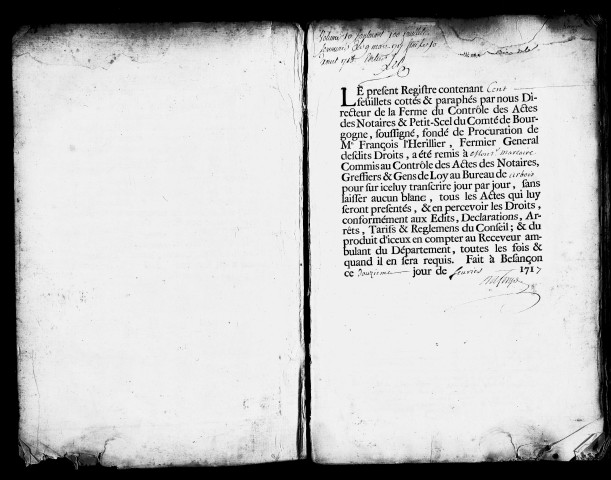 Volume 10 contenant 100 feuillets
commencé le 9 mars 1717 fini le 10
aout 1718
LE present Registre contenant Cent
feuillets cottés & paraphés par nous Di-
recteur de la Ferme du Contrôle des Actes
des Notaires & Petit-Scel du Comté de Bour-
gogne, souffigné, fondé de Procuration de
Me François l'Herillier, Fermier General
desdits Droits, a été remis à
Commis au Contrôle des Actes des Notaires,
Greffiers & Gens de Loy au Bureau de arbois
pour sur iceluy transcrire jour par jour, sans
laisser aucun blanc, tous les Actes qui luy
seront presentés, & en percevoir les Droits,
conformément aux Edits, Declarations, Ar-
rêts, Tarifs & Reglemens du Conseil; & du
produit d'iceux en compter au Receveur am-
bulant du Département, toutes les fois &
quand il en sera requis. Fait à Besançon
ce douzieme jour de fevrier 1717